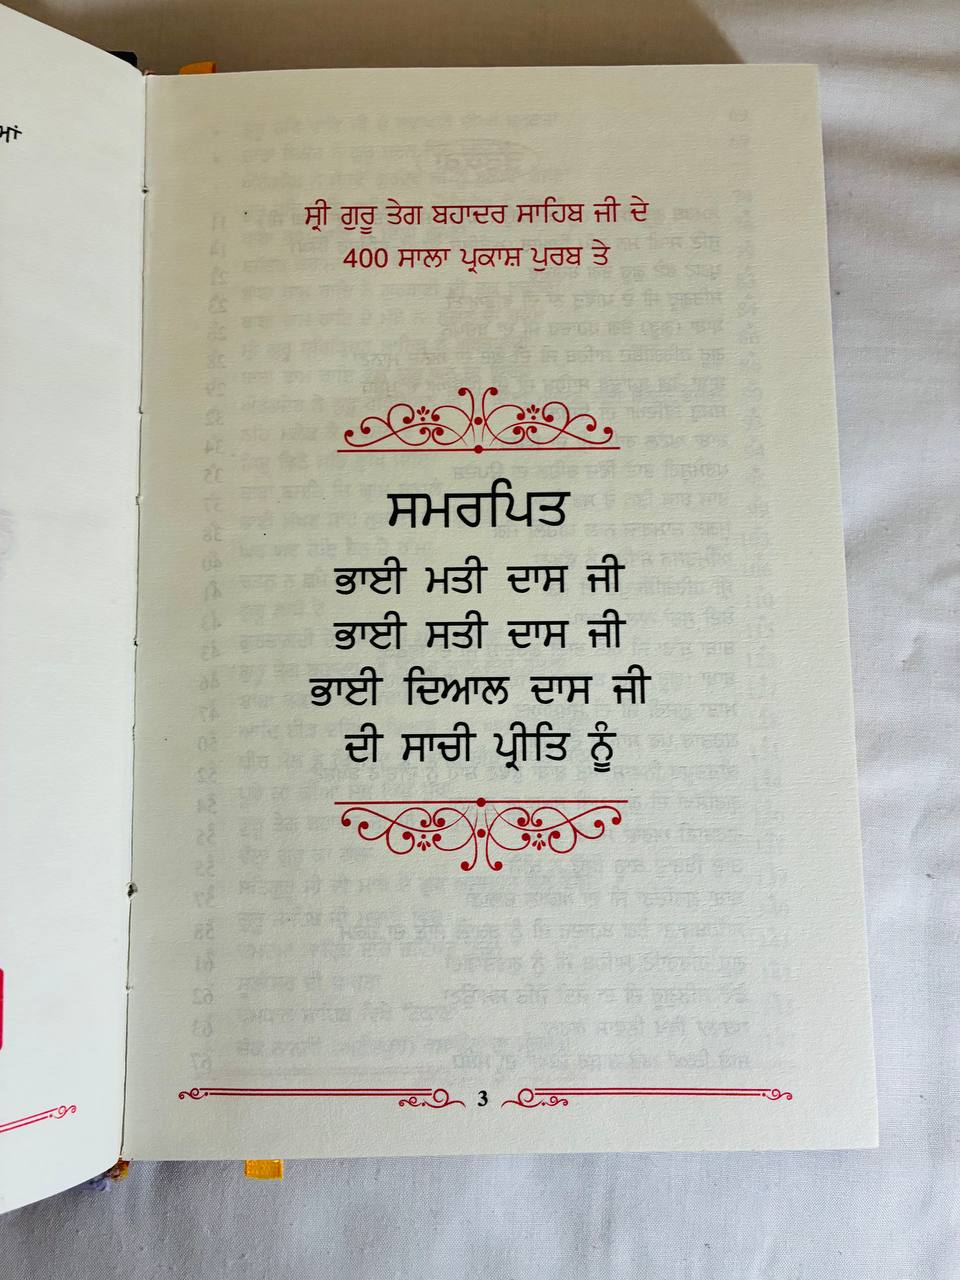 ਸ੍ਰੀ ਗੁਰੂ ਤੇਗ ਬਹਾਦਰ ਸਾਹਿਬ ਜੀ ਦੇ
400 ਸਾਲਾ ਪ੍ਰਕਾਸ਼ ਪੁਰਬ ਤੇ
ਸਮਰਪਿਤ
ਭਾਈ ਮਤੀ ਦਾਸ ਜੀ
ਭਾਈ ਸਤੀ ਦਾਸ ਜੀ
ਭਾਈ ਦਿਆਲ ਦਾਸ ਜੀ
ਦੀ ਸਾਚੀ ਪ੍ਰੀਤਿ ਨੂੰ
3